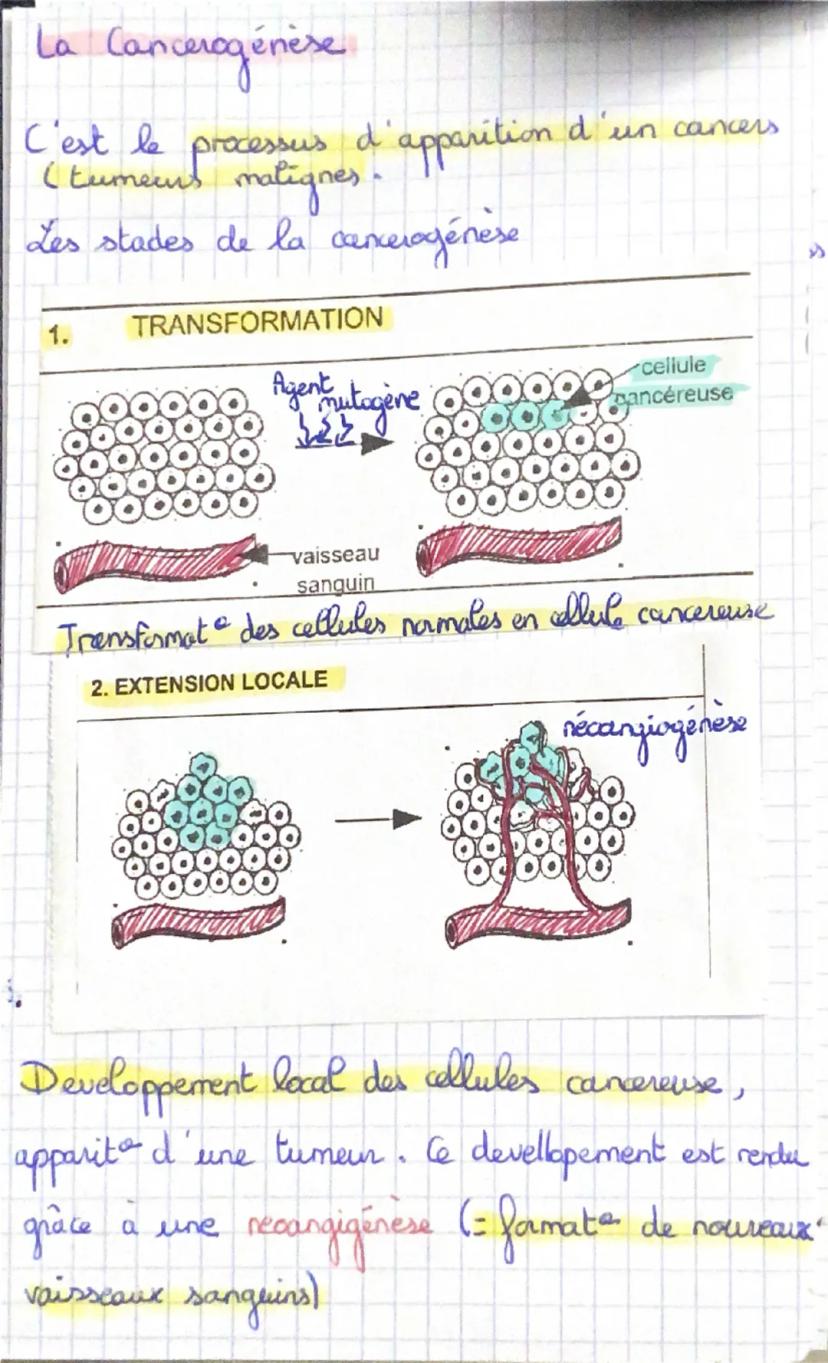 La Cancerogénèse
C'est le processus d'apparition d'un cancers
(tumeurs malignes.
Les stades de la cancerogénèse
1. TRANSFORMATION
Agent mutagène
cellule
cancéreuse
vaisseau
sanguin
Transformat° des cellules normales en cellule cancereuse
2. EXTENSION LOCALE
néoangiogénèse
Developpement local des cellules cancereuse,
apparit° d'une tumeur. Ce devellopement est rendu
grâce à une neoangigénèse (= format° de nouveaux
vaisseaux sanguins)